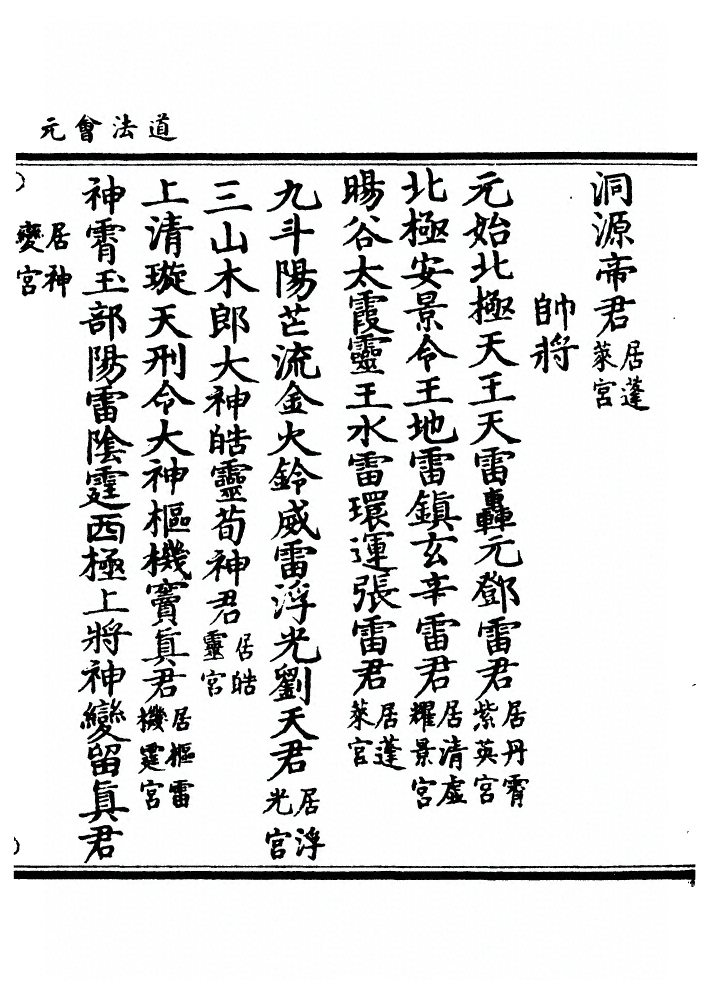 道法會元
洞源帝君居蓬萊宮
帥將
元始北極天王天雷轟元鄧雷君居丹霄紫英宮
北極安景令王地雷鎮玄辛雷君居清虛耀景宮
暘谷太霞靈王水雷環運張雷君居蓬萊宮
九斗陽芒流金火鈴威雷浮光劉天君居浮光宮
三山木郎大神皓靈荀神君居皓靈宮
上清璇天刑令大神樞機竇真君居樞雷機霆宮
神霄玉部陽雷陰霆西極上將神變留真君
居神變宮